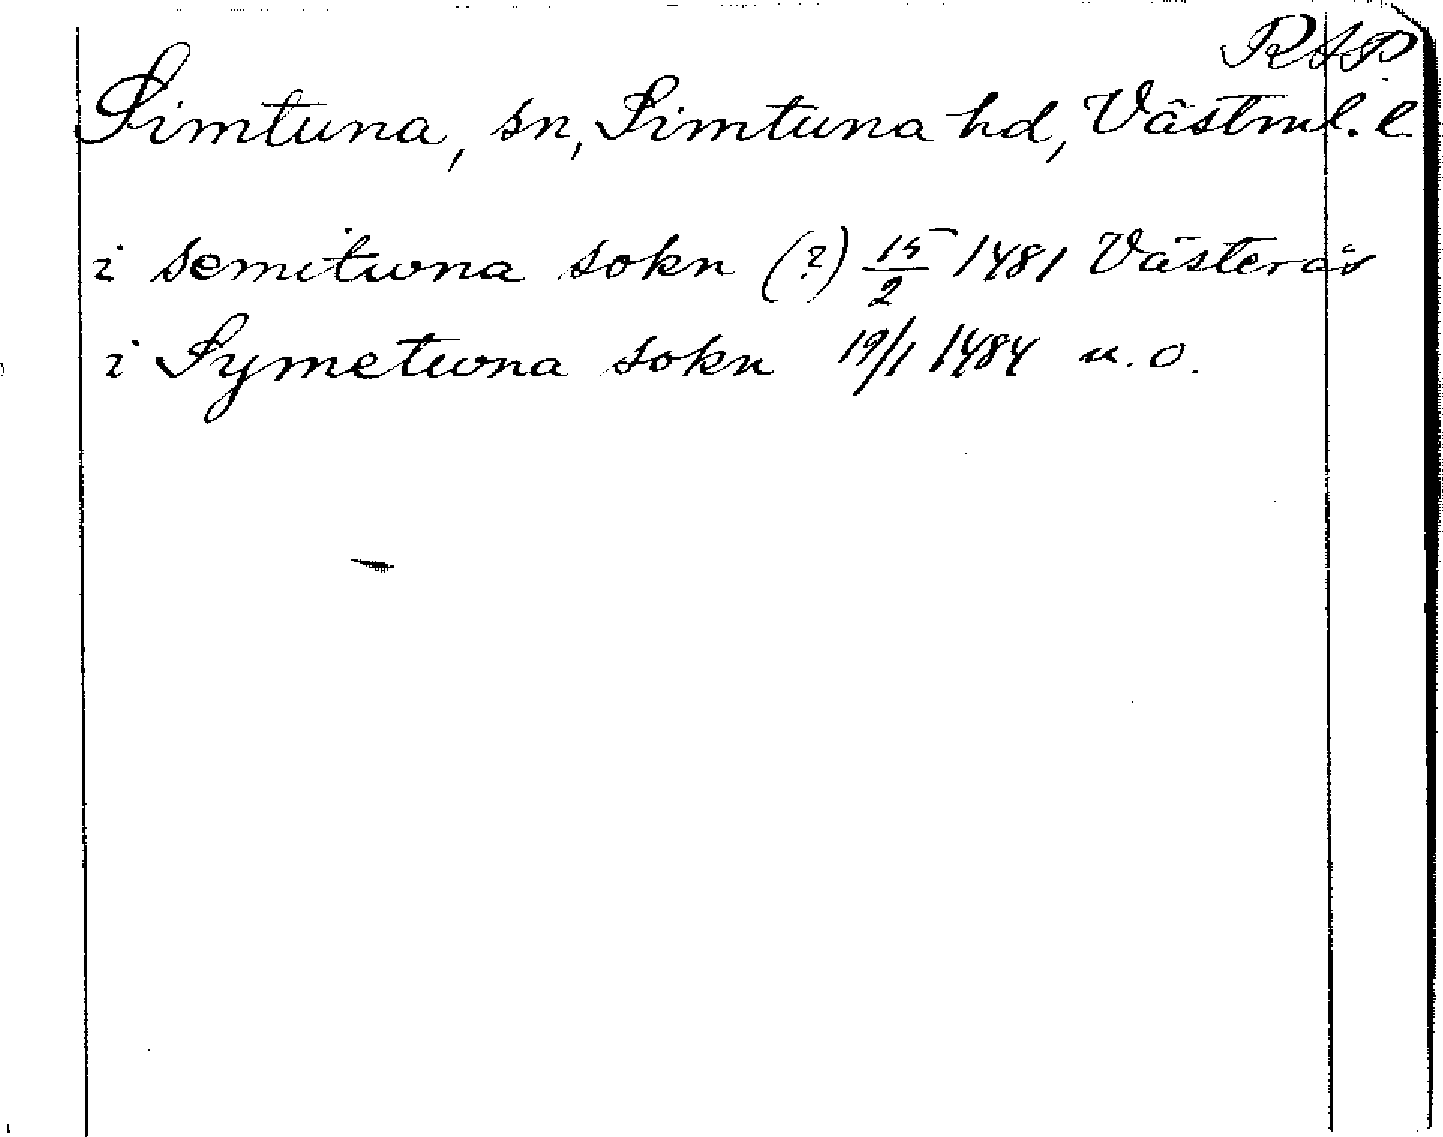 RAP
Simtuna, sn, Simtuna hd, Västml. l.
i semitwna sokn (?) 15/2 1481 Västerås
i Symetwna sokn 19/1 1484 u. o.